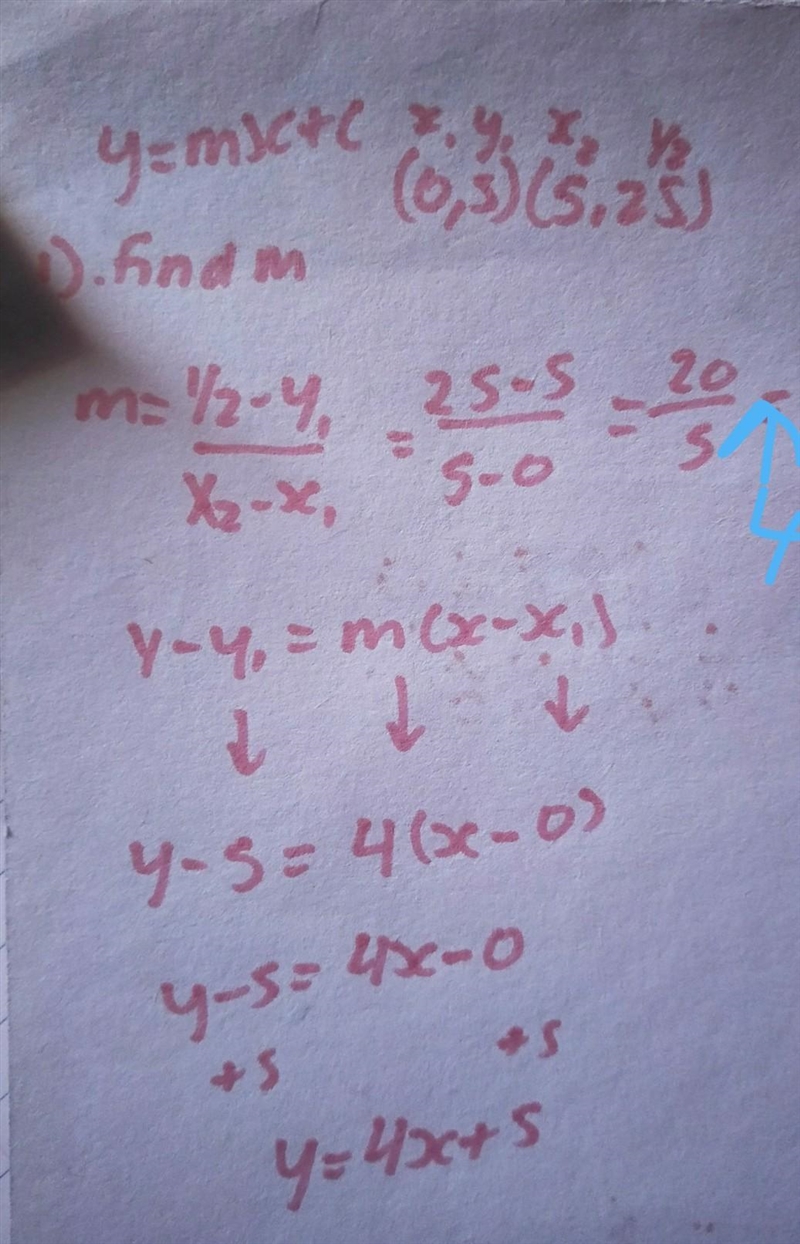 y=mx+c x₁ y₁ x₂ y₂
(0,5)(5,25)
1).find m
m= y₂-y₁ / x₂-x₁ = 25-5 / 5-0 = 20 / 5 = 4
y-y₁ = m(x-x₁)
↓ ↓ ↓
y-5= 4(x-0)
y-5= 4x-0
+5 +5
y=4x+5